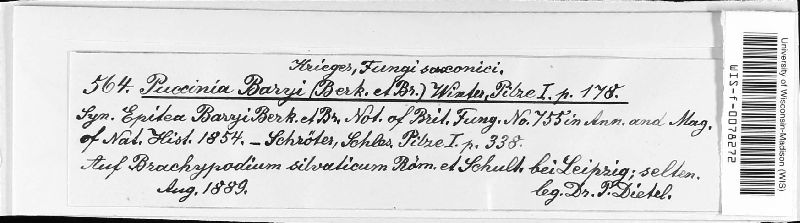 Krieger, Fungi saxonici.
564. Puccinia Baryi (Berk. et Br.) Winter, Pilze I. p. 178.
Syn. Epitea Baryi Berk. et Br. Not. of Brit. Fung. No. 755 in Ann. and Mag.
of Nat. Hist. 1854. — Schröter, Schles. Pilze I. p. 338.
Auf Brachypodium silvaticum Röm. et Schult. bei Leipzig; selten.
Aug. 1889.
lg. Dr. P. Dietel.
University of Wisconsin-Madison (WIS)
WIS-F-0078272